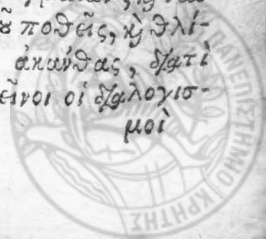 ῦ ποθεῖς, καὶ θλί-
ἀκανθας, διατὶ
εῖνοι οἱ διαλογισ-
μοὶ
ΠΑΝΕΠΙΣΤΗΜΙΟ ΚΡΗΤΗΣ